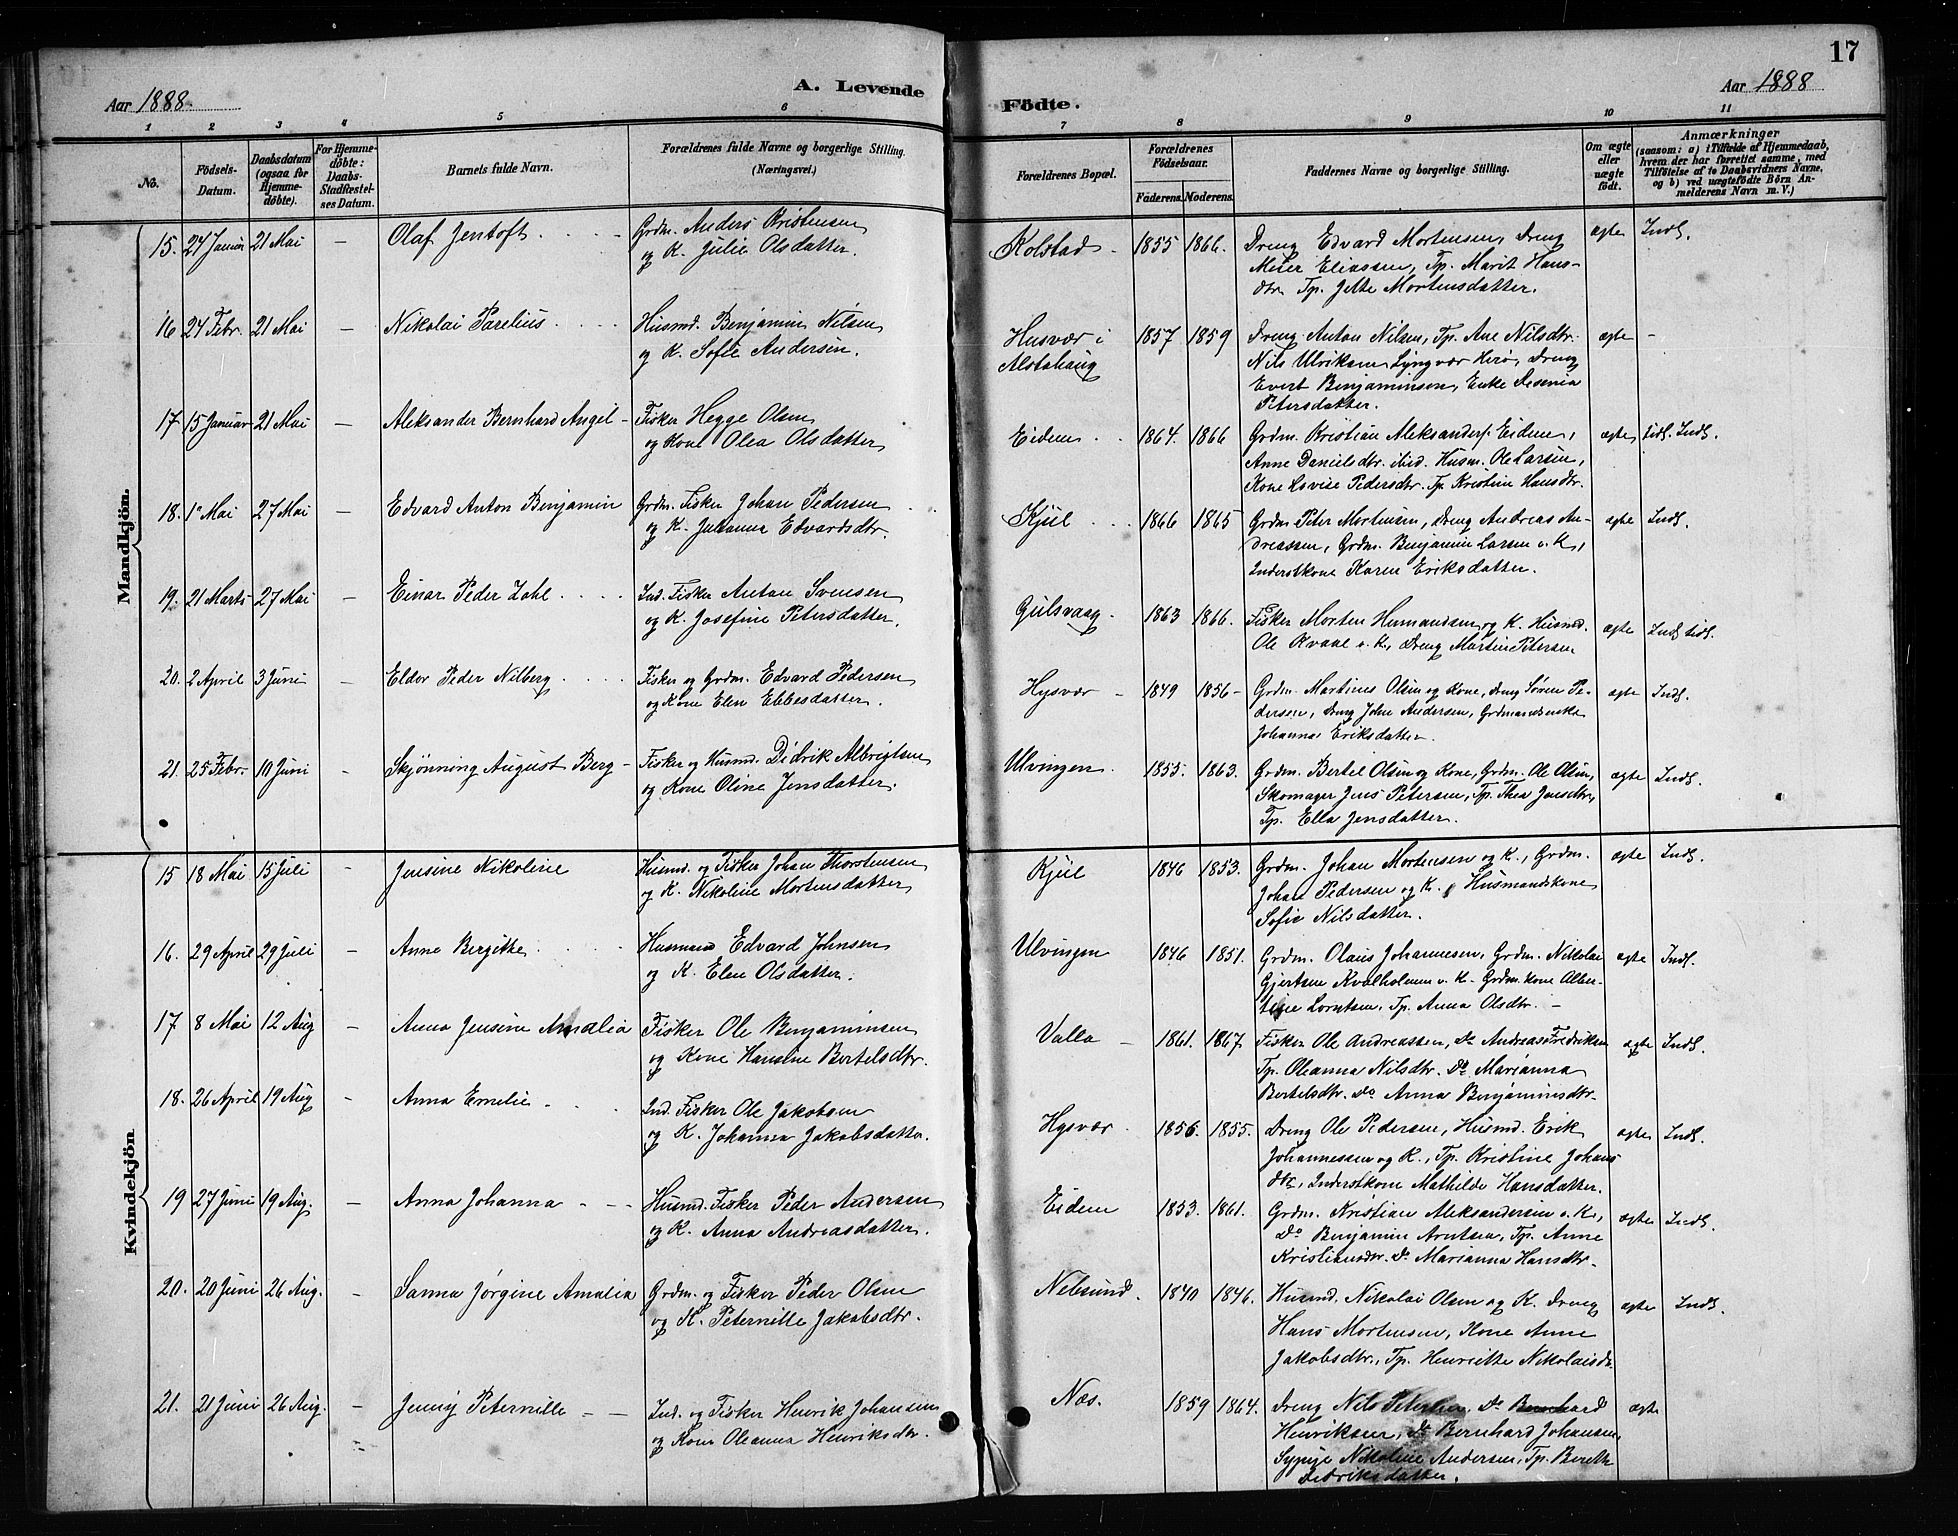 17
Aar 1888. A. Levende Födte. Aar 1888
1 2 3 4 5 6 7 8 9 10 11
No. Födsels-Datum. Daabsdatum (ogsaa for Hjemmedøbte). For Hjemmedöbte: Daabs-Stadfæstelses Datum. Barnets fulde Navn. Forældrenes fulde Navne og borgerlige Stilling. (Næringsvei.) Forældrenes Bopæl. Forældrenes Födselsaar. Faderens. Moderens. Faddernes Navne og borgerlige Stilling. Om ægte eller uægte födt. Anmærkninger (saasom: a) i Tilfælde af Hjemmedaab, hvem der har forrettet samme, med Tilföielse af to Daabsvidners Navne, og b) ved uægtefödte Börn Anmelderens Navn m. V.)
Mandkjön.
15. 24 Januar 21 Mai – Olaf Jentoft. Grdm. Anders Kristensen Kolstad 1855 1866. Dreng Edvard Mortensen, Dreng ægte Indl.
og K. Julie Olsdatter. Meier Eliassen, Tp. Marit Hans-
dtr. Tp. Jette Mortensdatter.
16 24 Febr. 21 Mai – Nikolai Parelius. Husmd. Benjamin Nilsen Husvær i 1857 1859 Dreng Anton Nilsen, Tp. Ane Nilsdtr. ægte –
og K. Sofie Andersen. Alstahaug Nils Ulriksen Lyngvær Herø, Dreng
Evert Benjaminsen, Enke
Petersdatter.
17 15 Januar 21 Mai – Aleksander Bernhard Angel – Fisker Hegge Olsen Eidem 1864. 1866 Grdm. Kristian Aleksanders. Eidem, ægte tidl. Indl.
og Kone Olea Olsdatter Anne Danielsdtr. ibid. Husm. Ole Larsen,
Kone Lovise Pedersdtr. Tp. Kristine Hansdtr.
18. 1ª Mai 27 Mai – Edvard Anton Benjamin Grdm. Fisker Johan Pedersen Kjul 1866 1865 Grdm Peter Mortensen, Dreng Andreas An- ægte Indl.
og K. Johanna Edvardsdtr. dreassen, Grdm. Benjamin Larsen o. K.,
Inderstkone Karen Eriksdatter.
19. 21 Marts 27 Mai – Einar Peder Zahl Ind. Fisker Anton Svensen Gulsvaag. 1863 1866. Fisker Morten Hermandsen og K. Husmd. ægte Indl. tidl.
og K. Josefine Petersdatter. Ole Kvaal o. K., Dreng Martin Petersen
20. 2 April 3 Juni – Eldor Peder Nilberg Fisker og Grdm. Edvard Pedersen Hysvær – 1849 1856 – Grdm. Martines Olsen og Kone, dreng Søren Pe- ægte Indl.
og Kone Elen Ebbesdatter. dersen, Dreng John Andersen,
Johanna Eriksdatter.
21. 25 Febr. 10 Juni – Skjønning August Berg – Fisker og Husmd. Didrik Albrigtsen Ulvingen. 1855. 1863. Grdm. Bertel Olsen og Kone, Grdm. Ole Olsen, ægte Indl.
og Kone Oline Jensdatter. Skomager Jens Petersen, Tp. Thea Jensdtr,
Tp. Ella Jensdatter.
Kvindekjön
15 18 Mai 15 Juli – Jensine Nikoline Husmd. og Fisker Johan Thorstensen Kjul 1846 1853. Grdm. Johan Mortensen og K., Grdm. ægte Indl.
og K. Nikoline Mortensdatter Johan Pedersen og K. Husmandskone
Sofie Nilsdatter.
16. 29 April 29 Juli – Anne Bergitte. Husmand Edvard Johnsen Ulvingen 1846 1851. Grdm. Olaus Johannesen, Grdm. Nikolai ægte Indl.
og K. Elen Olsdatter. Gjertsen Kvalholmen o. K. Grdm. kone Alber-
tine Lorntsen, Tp. Anna Olsdtr. –
17 8 Mai 12 Aug – Anna Jensine Amalia Fisker Ole Benjaminsen Valla – 1861. 1867. Fisker Ole Andreassen, Do Andreas Fredriksen ægte Indl.
og Kone Hansine Bertelsdtr. Tp. Oleanna Nilsdtr. Do Marianna
Bertelsdtr. Do Anna Benjaminsdtr.
18. 26 April 19 Aug – Anna Emelie Ind. Fisker Ole Jakobsen Hysvær 1856. 1855. Dreng Ole Pedersen, Husmd. Erik ægte Indl.
og K. Johanna Jakobsdatter. Johannessen og K., Tp. Kristine Johans
dtr., Inderstkone Mathilde Hansdatter.
19 27 Juni 19 Aug. – Anna Johanna – Husmd. Fisker Peder Andersen Eidem 1853. 1861. Grdm. Kristian Aleksandersen o. K., ægte Indl.
og K. Anna Andreasdatter. Do Benjamin Arntsen, Tp. Anne
Kristiansdtr. Do Marianna Hansdtr.
20. 20 Juni 26 Aug. – Sanna Jørgine Amalia Grdm. og Fisker Peder Olsen Nelsund. 1840 1846. Husmd. Nikolai Olsen og K. Dreng ægte Indl.
og K. Peternille Jakobsdtr. Hans Mortensen, Kone Anne
Jakobsdtr., Tp. Henriette Nikolaisd.
21. 21 Juni 26 Aug. – Jenny Peternille – – Ind. og Fisker Henrik Johansen Næs. 1859 1864. Dreng Nils Do Bernhard ægte
og Kone Oleanna Henriksdtr. Henriksen, Do Bernhard Johansen,
Sypige Nikoline Andersen, Tp. Bereth
Didriksdatter.